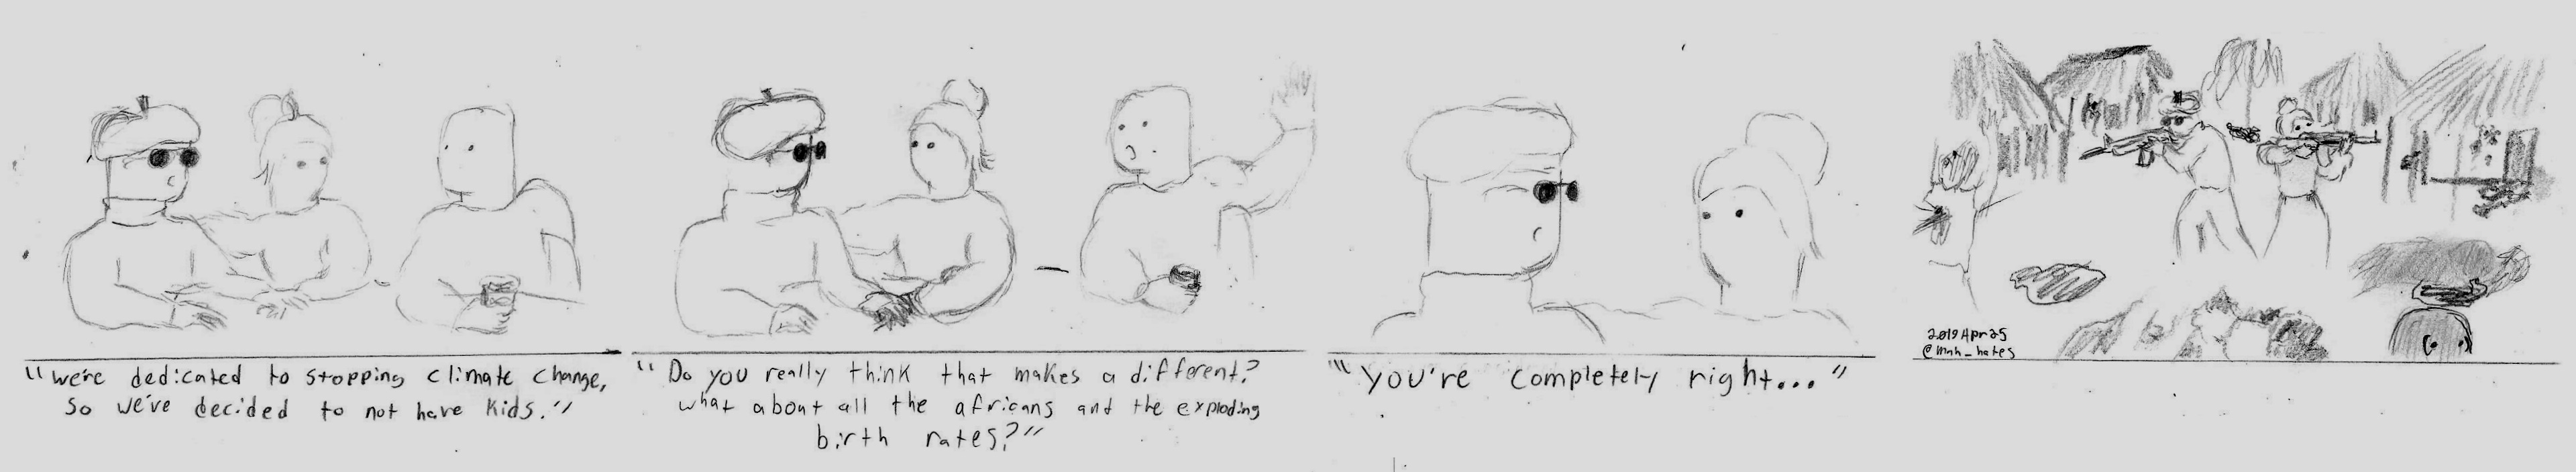 "we're dedicated to stopping climate change,
so we've decided to not have kids."
"Do you really think that makes a different?
what about all the africans and the exploding
birth rates?"
"you're completely right..."
2019 Apr 25
@mnh_hates